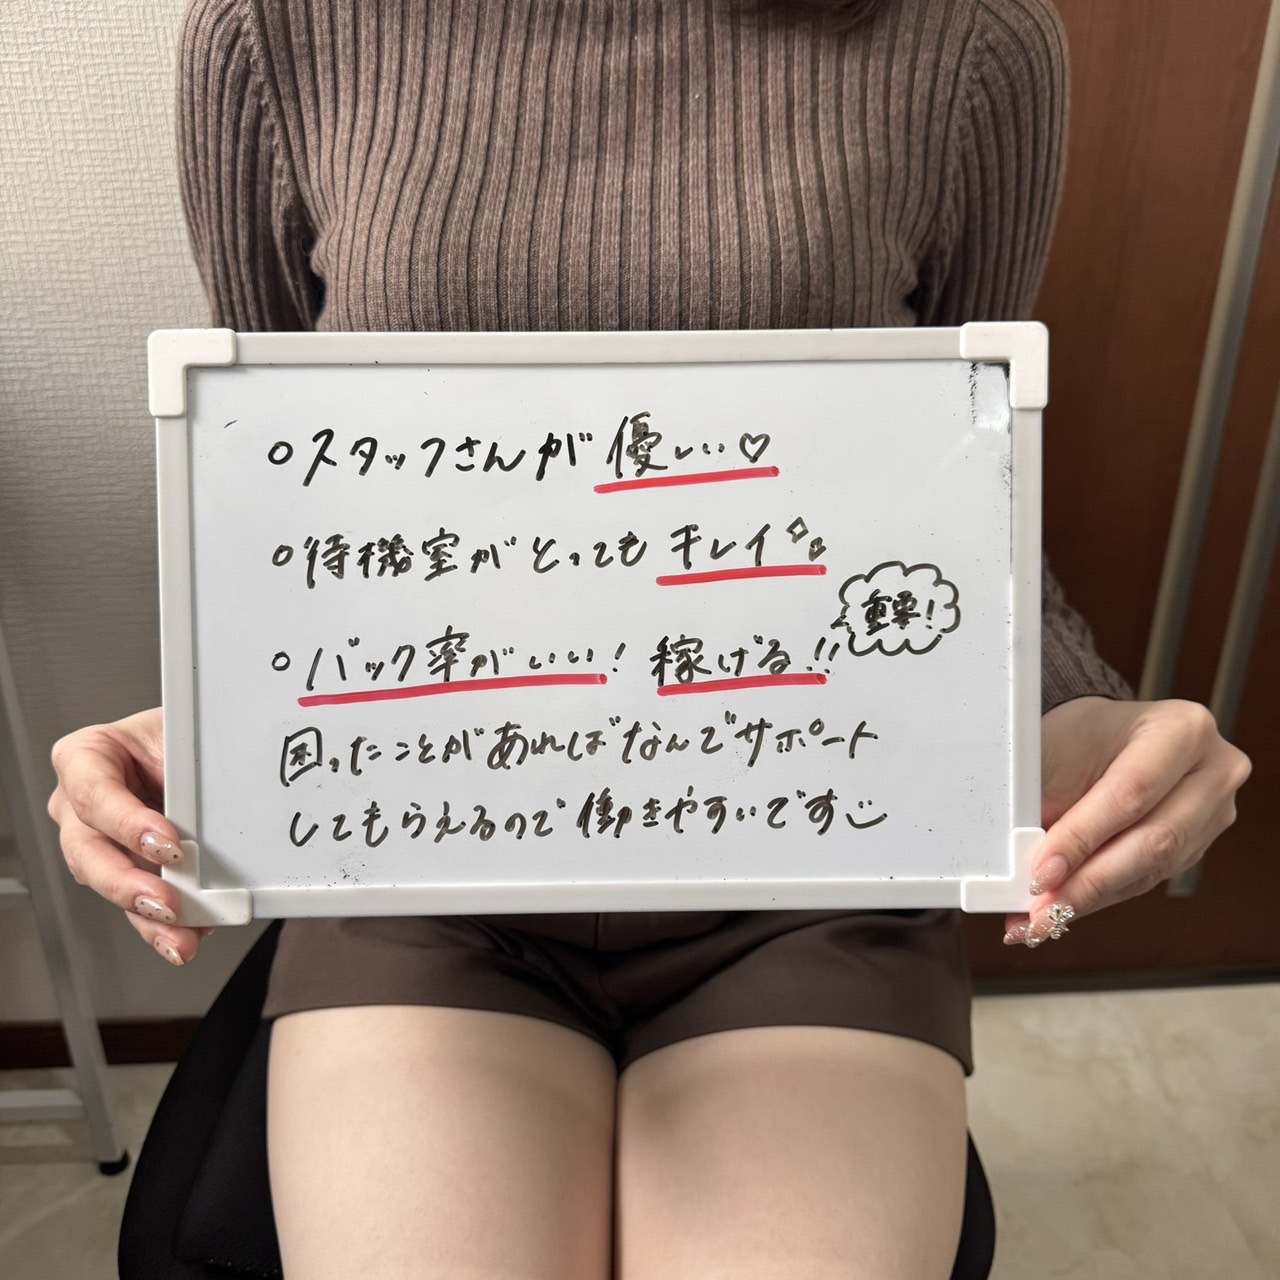 ○スタッフさんが優しい♡
○待機室がとってもキレイ
○バック率がいい! 稼げる!!
重要!
困ったことがあればなんでサポート
してもらえるので働きやすいです